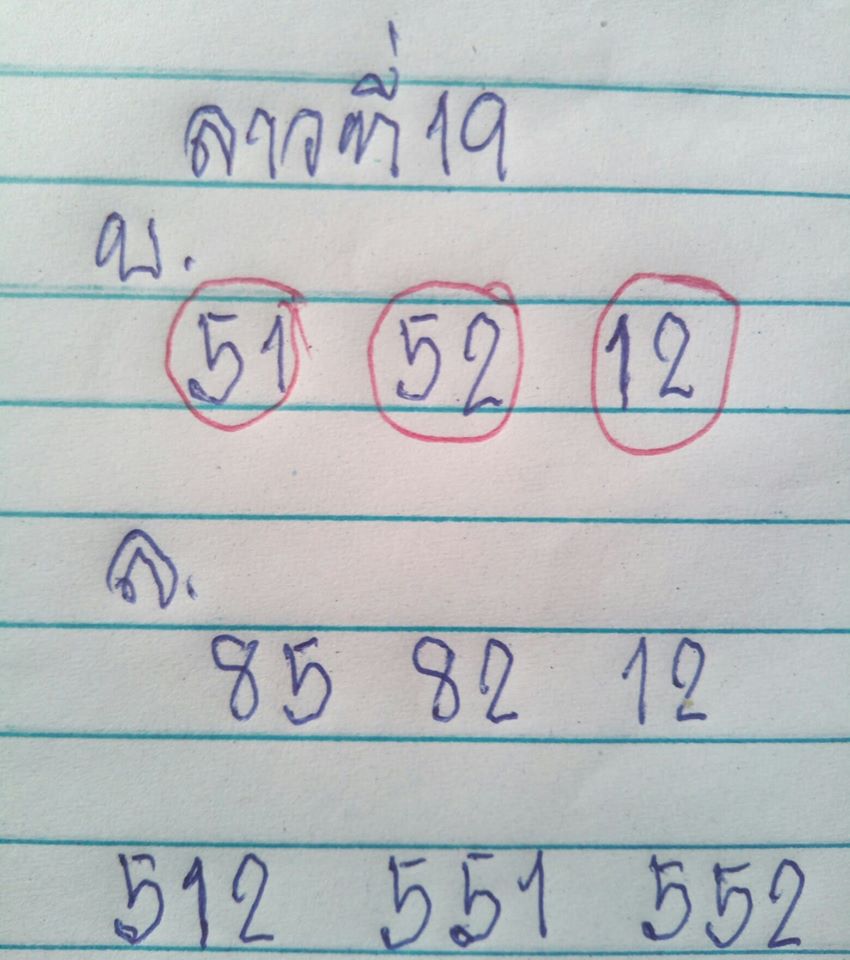 ลาวที่ 19
บ.
51 52 12
ล.
85 82 12
512 551 552